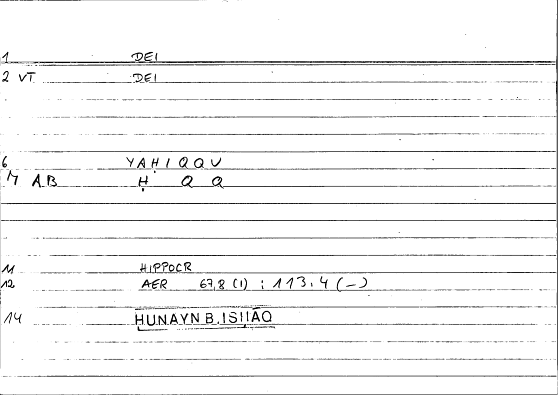 1 DEI
2 VT DEI
6 YAḤIQQU
7 AB Ḥ Q Q
11 HIPPOCR
12 AER 67,8 (1) : 113.4 (–)
14 HUNAYN B. ISḤĀQ